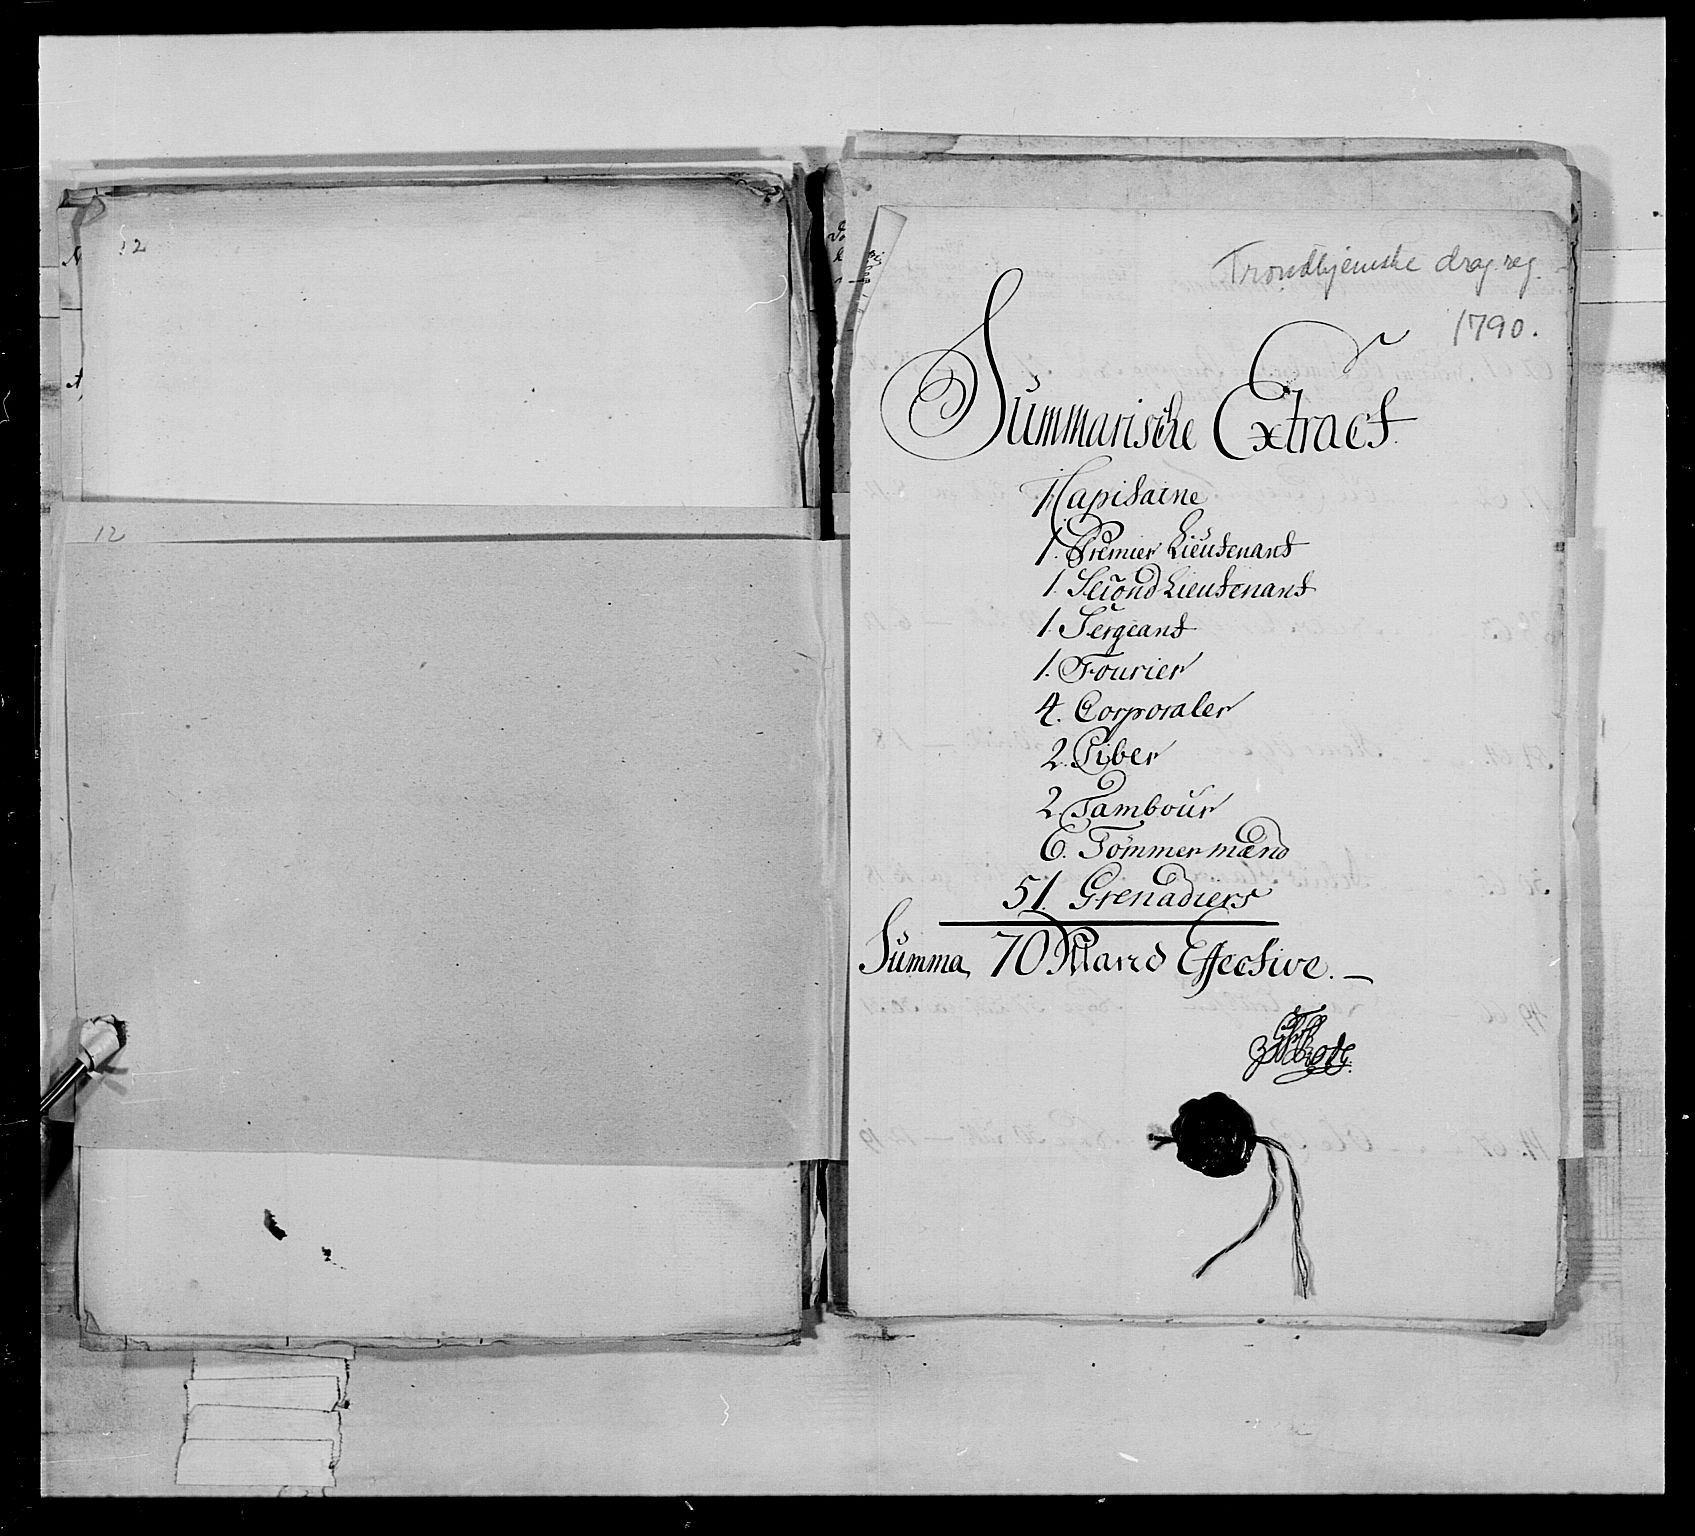 12
12
Trondhjemske drag. reg.
1790.
Summarische Extract.
1 Capitaine
1. Premier Lieutenant
1. Second Lieutenant
1. Sergeant
1. Fourier
4. Corporaler
2. Piber
2. Tambour
6. Tömmermænd
51. Grenadiers
Summa, 70 Mand Effective. —